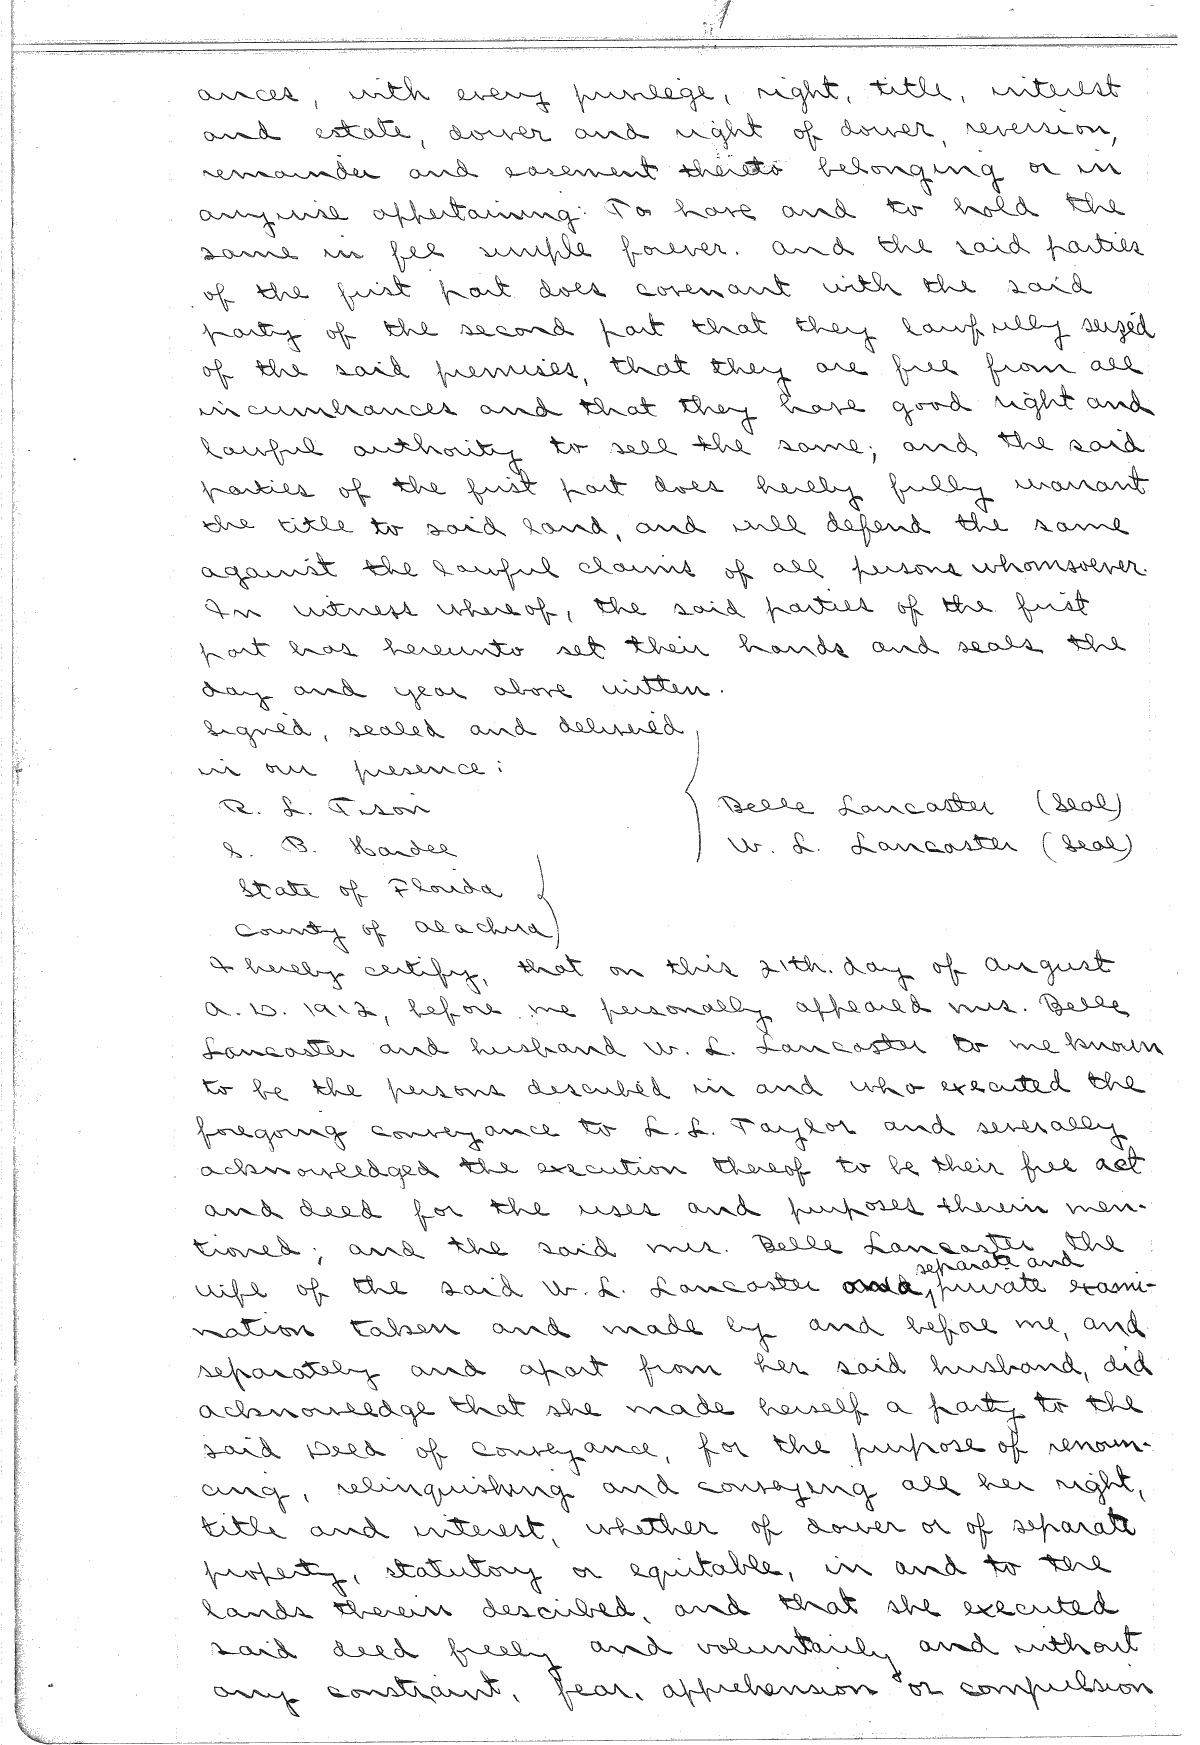 ances, with every privilege, right, title, interest
and estate, dower and right of dower, reversion,
remainder and easement thereto belonging or in
anywise appertaining: To have and to hold the
same in fee simple forever. And the said parties
of the first part does covenant with the said
party of the second part that they lawfully seized
of the said premises, that they are free from all
incumbrances and that they have good right and
lawful authority to sell the same; and the said
parties of the first part does hereby fully warrant
the title to said land, and will defend the same
against the lawful claims of all persons whomsoever.
In witness whereof, the said parties of the first
part has hereunto set their hands and seals the
day and year above written.
Signed, sealed and delivered
in our presence:
R. L. Tison Belle Lancaster (Seal)
S. B. Hardee W. L. Lancaster (Seal)
State of Florida
County of Alachua
I hereby certify, that on this 21th. day of August
A. D. 1912, before me personally appeared Mrs. Belle
Lancaster and husband W. L. Lancaster to me known
to be the persons described in and who executed the
foregoing conveyance to L. L. Taylor and severally
acknowledged the execution thereof to be their free act
and deed for the uses and purposes therein men-
tioned; and the said Mrs. Belle Lancaster the
separate and
wife of the said W. L. Lancaster private exami-
nation taken and made by and before me, and
separately and apart from her said husband, did
acknowledge that she made herself a party to the
said Deed of Conveyance, for the purpose of renoun-
cing, relinquishing and conveying all her right,
title and interest, whether of dower or of separate
property, statutory or equitable, in and to the
lands therein described, and that she executed
said deed freely and voluntarily and without
any constraint, fear, apprehension or compulsion